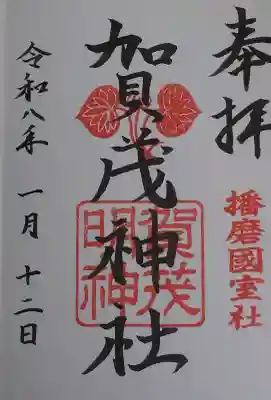 奉拝
播磨國室社
賀茂神社
賀茂
明神
令和八年 一月 十二日